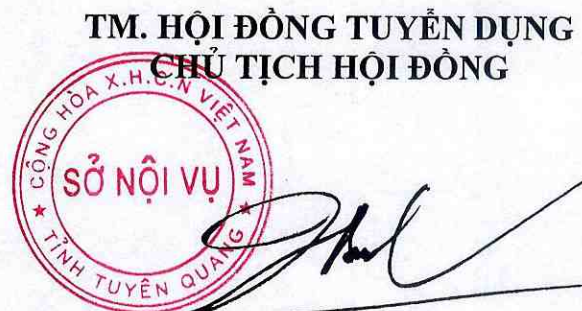 TM. HỘI ĐỒNG TUYỂN DỤNG
CHỦ TỊCH HỘI ĐỒNG
CỘNG HÒA X.H.C.N VIỆT NAM
SỞ NỘI VỤ
★ TỈNH TUYÊN QUANG ★